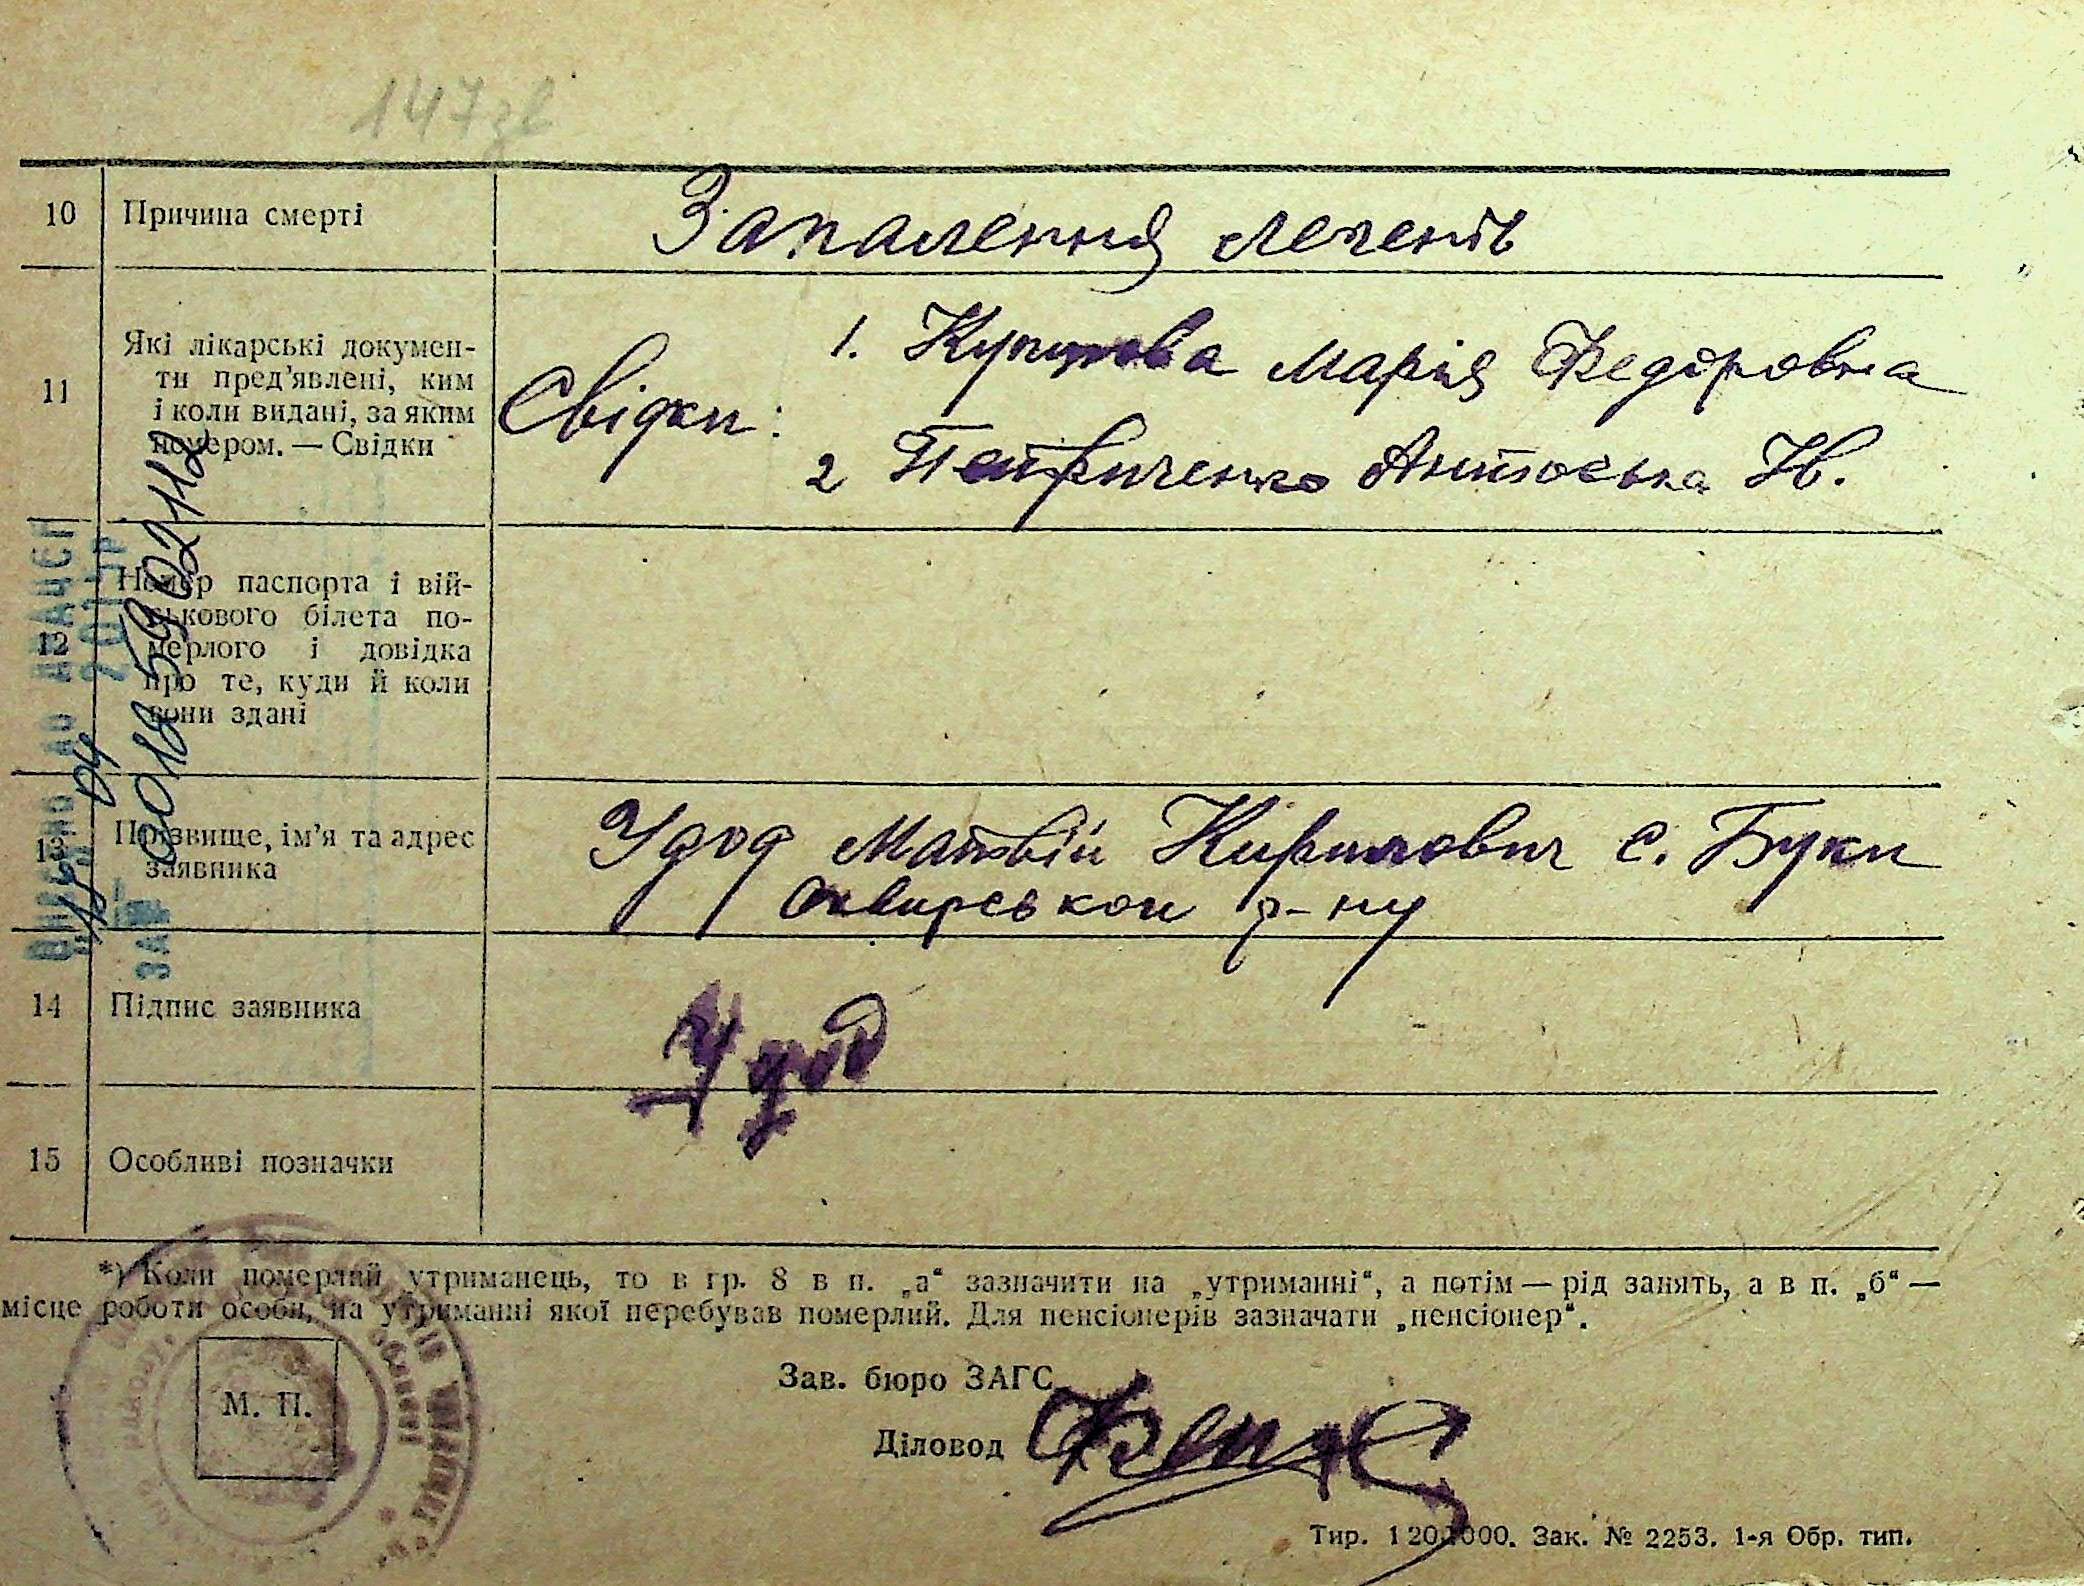 147зв
10 Причина смерті Запалення легенів
11 Які лікарські докумен-
ти пред'явлені, ким
і коли видані, за яким
номером. — Свідки
Свідки: 1. Марія Федоровна
2 Петриченко Антоська Ів.
12 Номер паспорта і вій-
ськового білета по-
мерлого і довідка
про те, куди й коли
вони здані
13 Прізвище, ім'я та адрес
заявника
Удод Матвій Кирилович с. Буки
Сквирськои р-ну
14 Підпис заявника Удод
15 Особливі позначки
Внесено до ДРАЦСГ
15 04 2011р
ЗА № 0018 59 02112
*) Коли померлий утриманець, то в гр. 8 в п. „а“ зазначити на „утриманні“, а потім — рід занять, а в п. „б“ —
місце роботи особи, на утриманні якої перебував померлий. Для пенсіонерів зазначати „пенсіонер“.
М. П.
Зав. бюро ЗАГС
Діловод
Тир. 120.000. Зак. № 2253. 1-я Обр. тип.